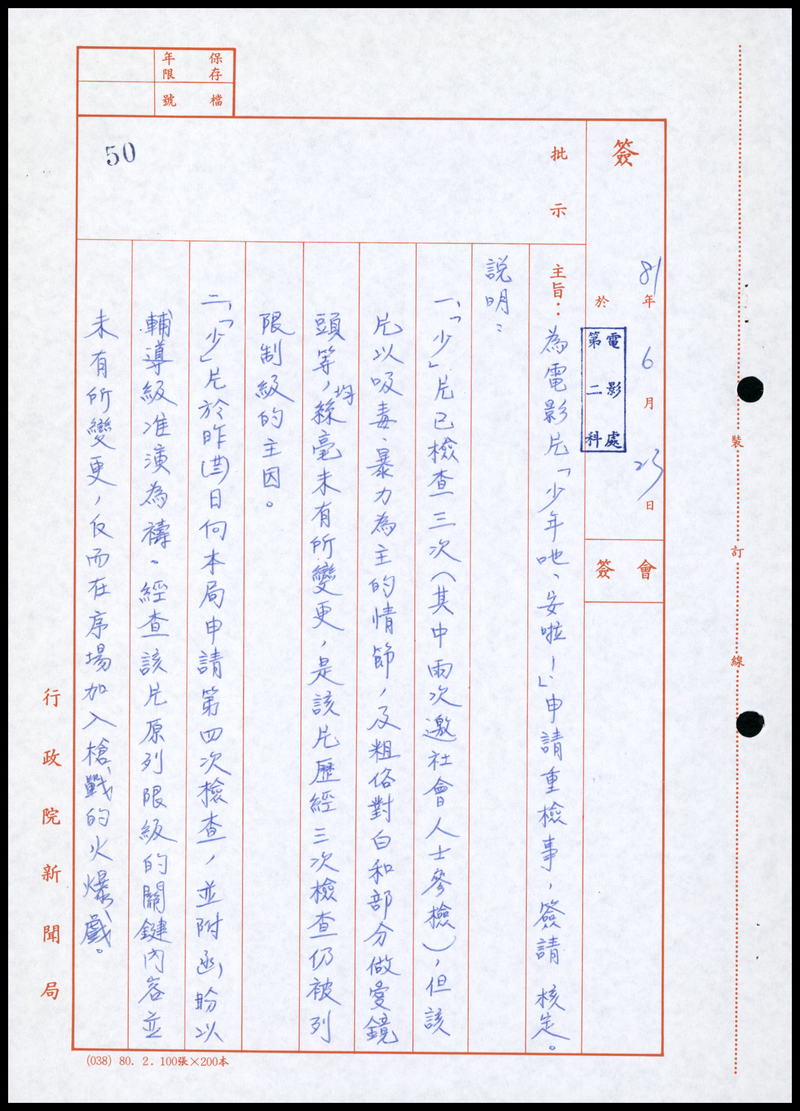 保存年限
檔號
50
簽
81年6月23日
於
電影處
第二科
會簽
批示
主旨：為電影片「少年吔、安啦！」申請重檢事，簽請 核定。
說明：
一、「少」片已檢查三次（其中兩次邀社會人士參檢），但該
片以吸毒、暴力為主的情節，及粗俗對白和部分做愛鏡
頭等，均絲毫未有所變更，是該片歷經三次檢查仍被列
限制級的主因。
二、「少」片於昨(廿二)日向本局申請第四次檢查，並附函，盼以
輔導級准演為禱。經查該片原列限級的關鍵內容並
未有所變更，反而在序場加入槍戰的火爆戲。
行政院新聞局
裝
訂
線
(038) 80. 2. 100張×200本